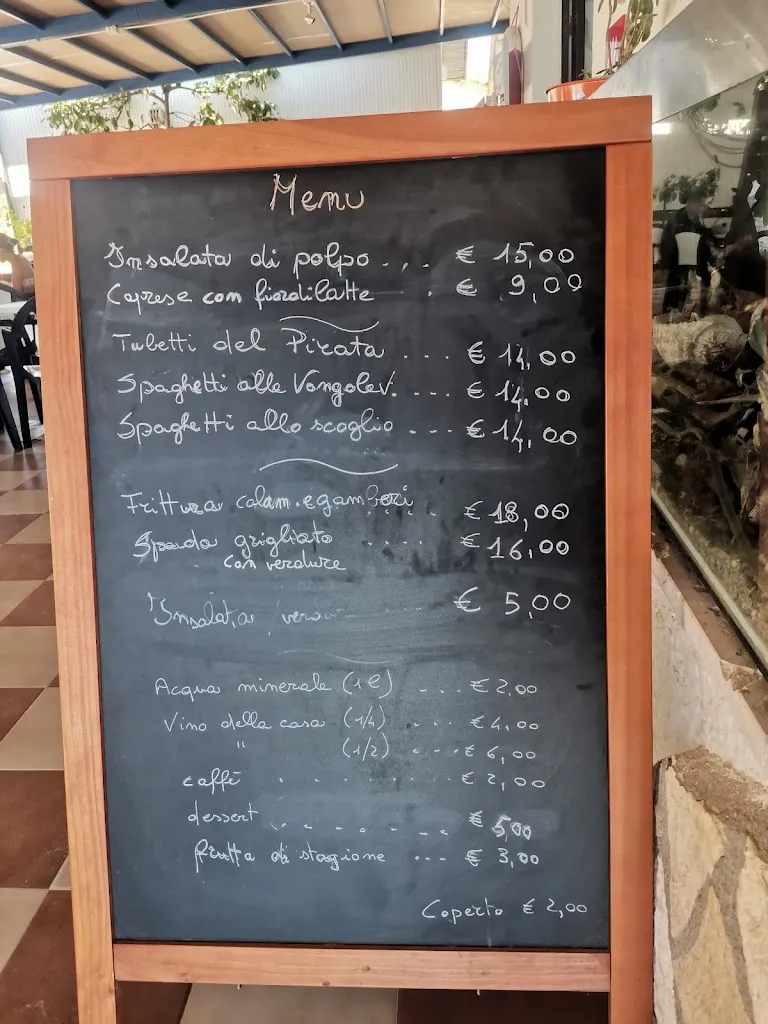 Menu
Insalata di polpo . . . € 15,00
Caprese con fiordilatte . € 9,00
Tubetti del Pirata . . . € 14,00
Spaghetti alle Vongolev. . . . € 14,00
Spaghetti allo scoglio . . . € 14,00
Frittura calam. e gamberi . . . € 18,00
Spada grigliato . . . . € 16,00
con verdure
Insalata / . . . € 5,00
Acqua minerale (1 l) . . . € 2,00
Vino della casa (1/4) . . . € 4,00
" (1/2) . . . € 6,00
caffè . . . . . . . € 2,00
dessert . . . . . . . € 5,00
frutta di stagione . . . € 3,00
Coperto € 2,00